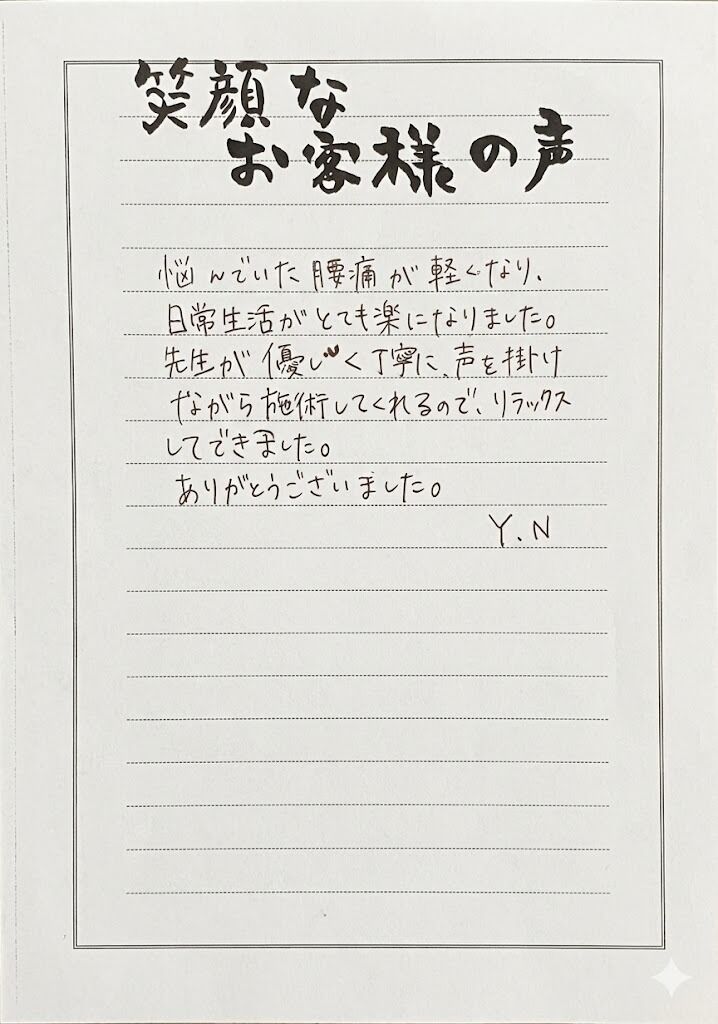 笑顔な
お客様の声
悩んでいた腰痛が軽くなり、
日常生活がとても楽になりました。
先生が優しく丁寧に、声を掛け
ながら施術してくれるので、リラックス
してできました。
ありがとうございました。
Y.N